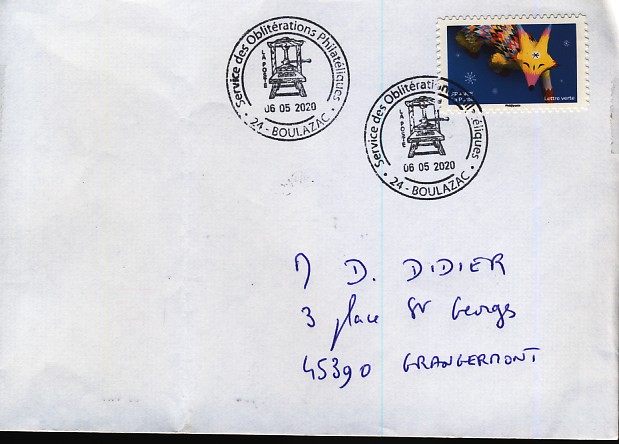 Service des Oblitérations Philatéliques
LA POSTE
06 05 2020
24 - BOULAZAC
Service des Oblitérations Philatéliques
LA POSTE
06 05 2020
24 - BOULAZAC
Lettre verte
M D. DIDIER
3 place St Georges
45390 GRANGERMONT